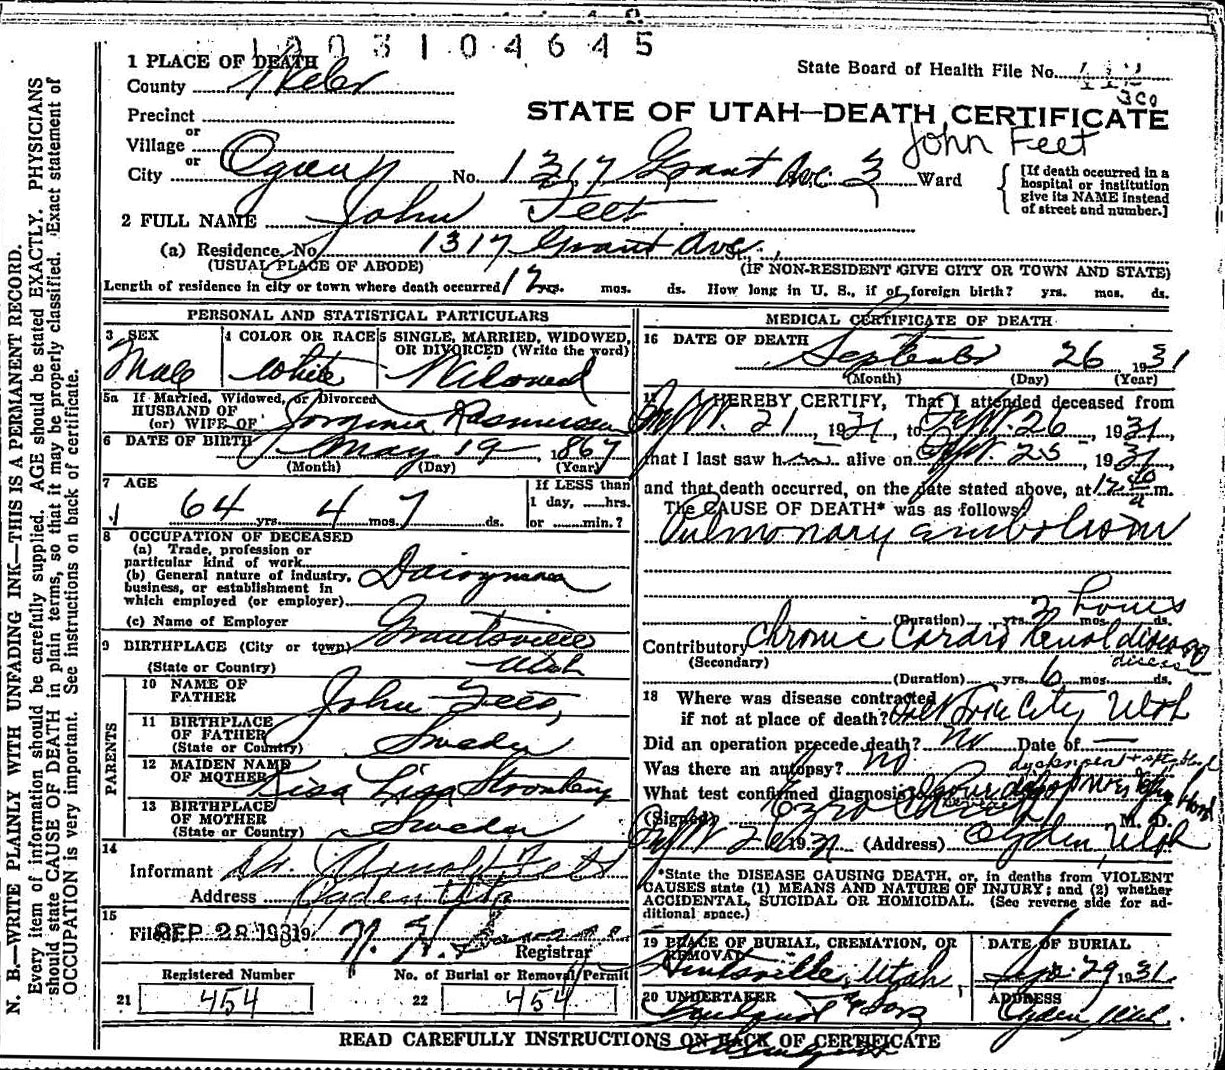 1003104645
1 PLACE OF DEATH
County Weber
State Board of Health File No.
300
Precinct
or
Village
or
STATE OF UTAH—DEATH CERTIFICATE
John Feet
City Ogden No. 1317 Grant Ave 3 Ward
[If death occurred in a hospital or institution give its NAME instead of street and number.]
2 FULL NAME John Feet
(a) Residence. No. 1317 Grant Ave. St.,
(USUAL PLACE OF ABODE) (IF NON-RESIDENT GIVE CITY OR TOWN AND STATE)
Length of residence in city or town where death occurred 12 yrs. mos. ds. How long in U. S., if of foreign birth? yrs. mos. ds.
PERSONAL AND STATISTICAL PARTICULARS
3 SEX
Male
4 COLOR OR RACE
White
5 SINGLE, MARRIED, WIDOWED,
OR DIVORCED (Write the word)
Widowed
5a If Married, Widowed, or Divorced
HUSBAND OF
(or) WIFE OF Rasmussen
6 DATE OF BIRTH May 19, 1867
(Month) (Day) (Year)
7 AGE
64 yrs. 4 mos. 7 ds.
If LESS than
1 day, hrs.
or min.?
8 OCCUPATION OF DECEASED
(a) Trade, profession or
particular kind of work
(b) General nature of industry,
business, or establishment in
which employed (or employer)
Dairyman
(c) Name of Employer
9 BIRTHPLACE (City or town) Huntsville
(State or Country) Utah
PARENTS
10 NAME OF
FATHER John
11 BIRTHPLACE
OF FATHER
(State or Country) Sweden
12 MAIDEN NAME
OF MOTHER Lisa
13 BIRTHPLACE
OF MOTHER
(State or Country) Sweden
14
Informant
Address Ogden Utah
15
Filed SEP 28 1931 19
Registrar
Registered Number
21 454
No. of Burial or Removal Permit
22 454
MEDICAL CERTIFICATE OF DEATH
16 DATE OF DEATH
September 26 1931
(Month) (Day) (Year)
17 I HEREBY CERTIFY, That I attended deceased from
Sept. 21, 1931, to Sept. 26, 1931,
that I last saw him alive on Sept. 25, 1931,
and that death occurred, on the date stated above, at 12 40 a m.
The CAUSE OF DEATH* was as follows:
Pulmonary embolism
2 hours
(Duration) yrs. mos. ds.
Contributory Chronic Cardio Renal disease
(Secondary) disease
(Duration) yrs. 6 mos. ds.
18 Where was disease contracted
if not at place of death? City Utah
Did an operation precede death? no Date of —
Was there an autopsy? no
What test confirmed diagnosis?
(Signed) Ezra M. D.
Sept 26 1931 (Address) Ogden, Utah
*State the DISEASE CAUSING DEATH, or, in deaths from VIOLENT
CAUSES state (1) MEANS AND NATURE OF INJURY; and (2) whether
ACCIDENTAL, SUICIDAL OR HOMICIDAL. (See reverse side for ad-
ditional space.)
19 PLACE OF BURIAL, CREMATION, OR
REMOVAL
Huntsville, Utah
DATE OF BURIAL
Sep. 29 1931
20 UNDERTAKER
Lindquist & Sons
ADDRESS
Ogden, Utah.
READ CAREFULLY INSTRUCTIONS ON BACK OF CERTIFICATE
N. B.—WRITE PLAINLY WITH UNFADING INK—THIS IS A PERMANENT RECORD.
Every item of information should be carefully supplied. AGE should be stated EXACTLY. PHYSICIANS
should state CAUSE OF DEATH in plain terms, so that it may be properly classified. Exact statement of
OCCUPATION is very important. See instructions on back of certificate.